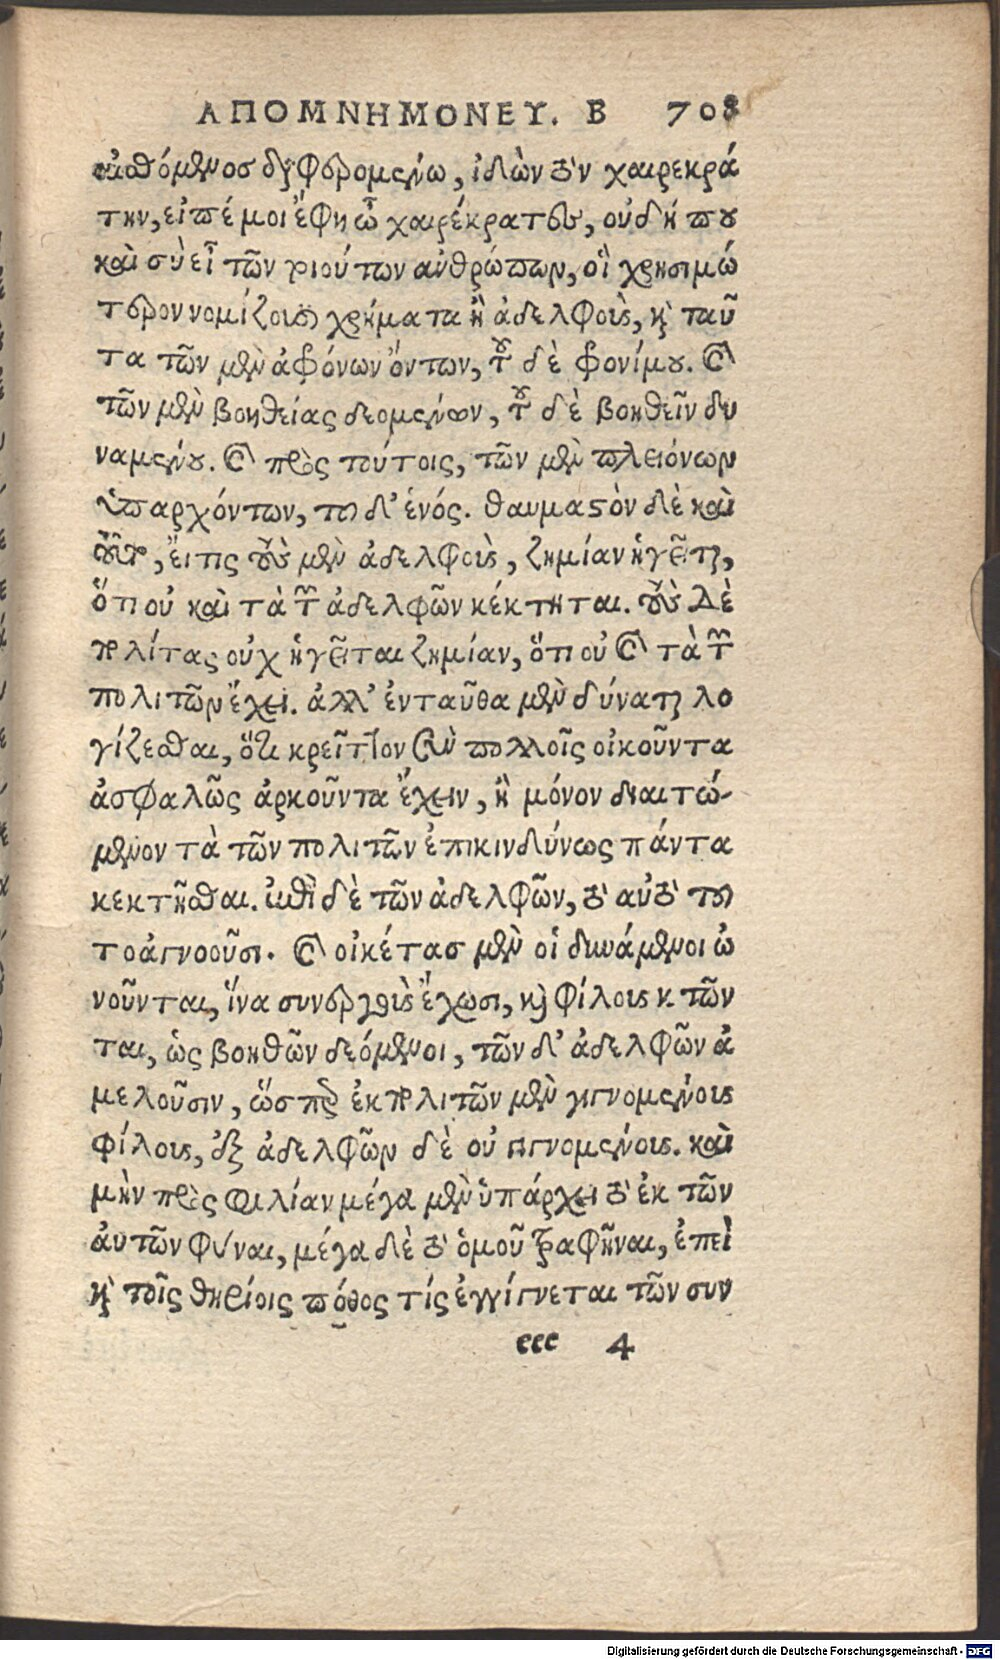 ΑΠΟΜΝΗΜΟΝΕΥ. Β 703
αἰσθόμενοσ διαφερομένω, ἰδὼν τὸν χαιρεκρά
την, εἰπέ μοι ἔφη ὦ χαιρέκρατες, οὐ δή που
καὶ σὺ εἶ τῶν τοιούτων ἀνθρώπων, οἳ χρησιμώ
τερον νομίζουσι χρήματα ἢ ἀδελφοὺς, καὶ ταῦ
τα τῶν μὲν ἀφρόνων ὄντων, τοῦ δὲ φρονίμου. καὶ
τῶν μὲν βοηθείας δεομένων, τοῦ δὲ βοηθεῖν δυ
ναμένου. καὶ πρὸς τούτοις, τῶν μὲν πλειόνων
ὑπαρχόντων, τοῦ δ' ἑνός. θαυμαστὸν δὲ καὶ
τοῦτο, εἴ τις τοὺς μὲν ἀδελφοὺς, ζημίαν ἡγεῖται,
ὅτι οὐ καὶ τὰ τῶν ἀδελφῶν κέκτηται. τοὺς δὲ
πολίτας οὐχ ἡγεῖται ζημίαν, ὅτι οὐ καὶ τὰ τῶν
πολιτῶν ἔχει. ἀλλ' ἐνταῦθα μὲν δύναται λο
γίζεσθαι, ὅτι κρεῖττον σὺν πολλοῖς οἰκοῦντα
ἀσφαλῶς ἀρκοῦντα ἔχειν, ἢ μόνον διαιτώ-
μενον τὰ τῶν πολιτῶν ἐπικινδύνως πάντα
κεκτῆσθαι. ἐπὶ δὲ τῶν ἀδελφῶν, τὸ αὐτὸ τοῦ
το ἀγνοοῦσι. καὶ οἰκέτασ μὲν οἱ δυνάμενοι ὠ
νοῦνται, ἵνα συνεργοὺς ἔχωσι, καὶ φίλους κτῶν
ται, ὡς βοηθῶν δεόμενοι, τῶν δ' ἀδελφῶν ἀ
μελοῦσιν, ὥσπερ ἐκ πολιτῶν μὲν γιγνομένους
φίλους, ἐξ ἀδελφῶν δὲ οὐ γιγνομένους. καὶ
μὴν πρὸς φιλίαν μέγα μὲν ὑπάρχει τὸ ἐκ τῶν
αὐτῶν φῦναι, μέγα δὲ τὸ ὁμοῦ τραφῆναι, ἐπεὶ
καὶ τοῖς θηρίοις πόθος τίς ἐγγίγνεται τῶν συν
eee 4
Digitalisierung gefördert durch die Deutsche Forschungsgemeinschaft - DFG